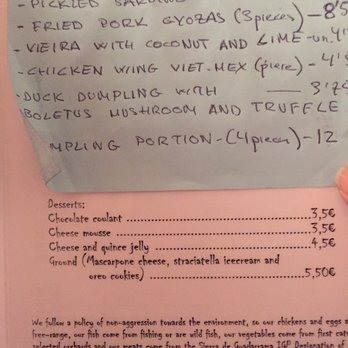 - PICKLED SARDINE
- FRIED PORK GYOZAS (3pieces) - 8'5
- VIEIRA WITH COCONUT AND LIME - un, 4'
- CHICKEN WING VIET-MEX (piere) - 4'
- DUCK DUMPLING WITH — 3'75
BOLETUS MUSHROOM AND TRUFFLE
MPLING PORTION - (4pieces) - 12
Desserts:
Chocolate coulant ........ 3,5€
Cheese mousse ........ 3,5€
Cheese and quince jelly ........ 4,5€
Ground (Mascarpone cheese, straciatella icecream and
oreo cookies) ........ 5,50€
We follow a policy of non-aggression towards the environment, so our chickens and eggs a
free-range, our fish come from fishing or are wild fish, our vegetables come from first cat
selected orchards and our meats come from the Sierra de Guadarrama IGP Designation of